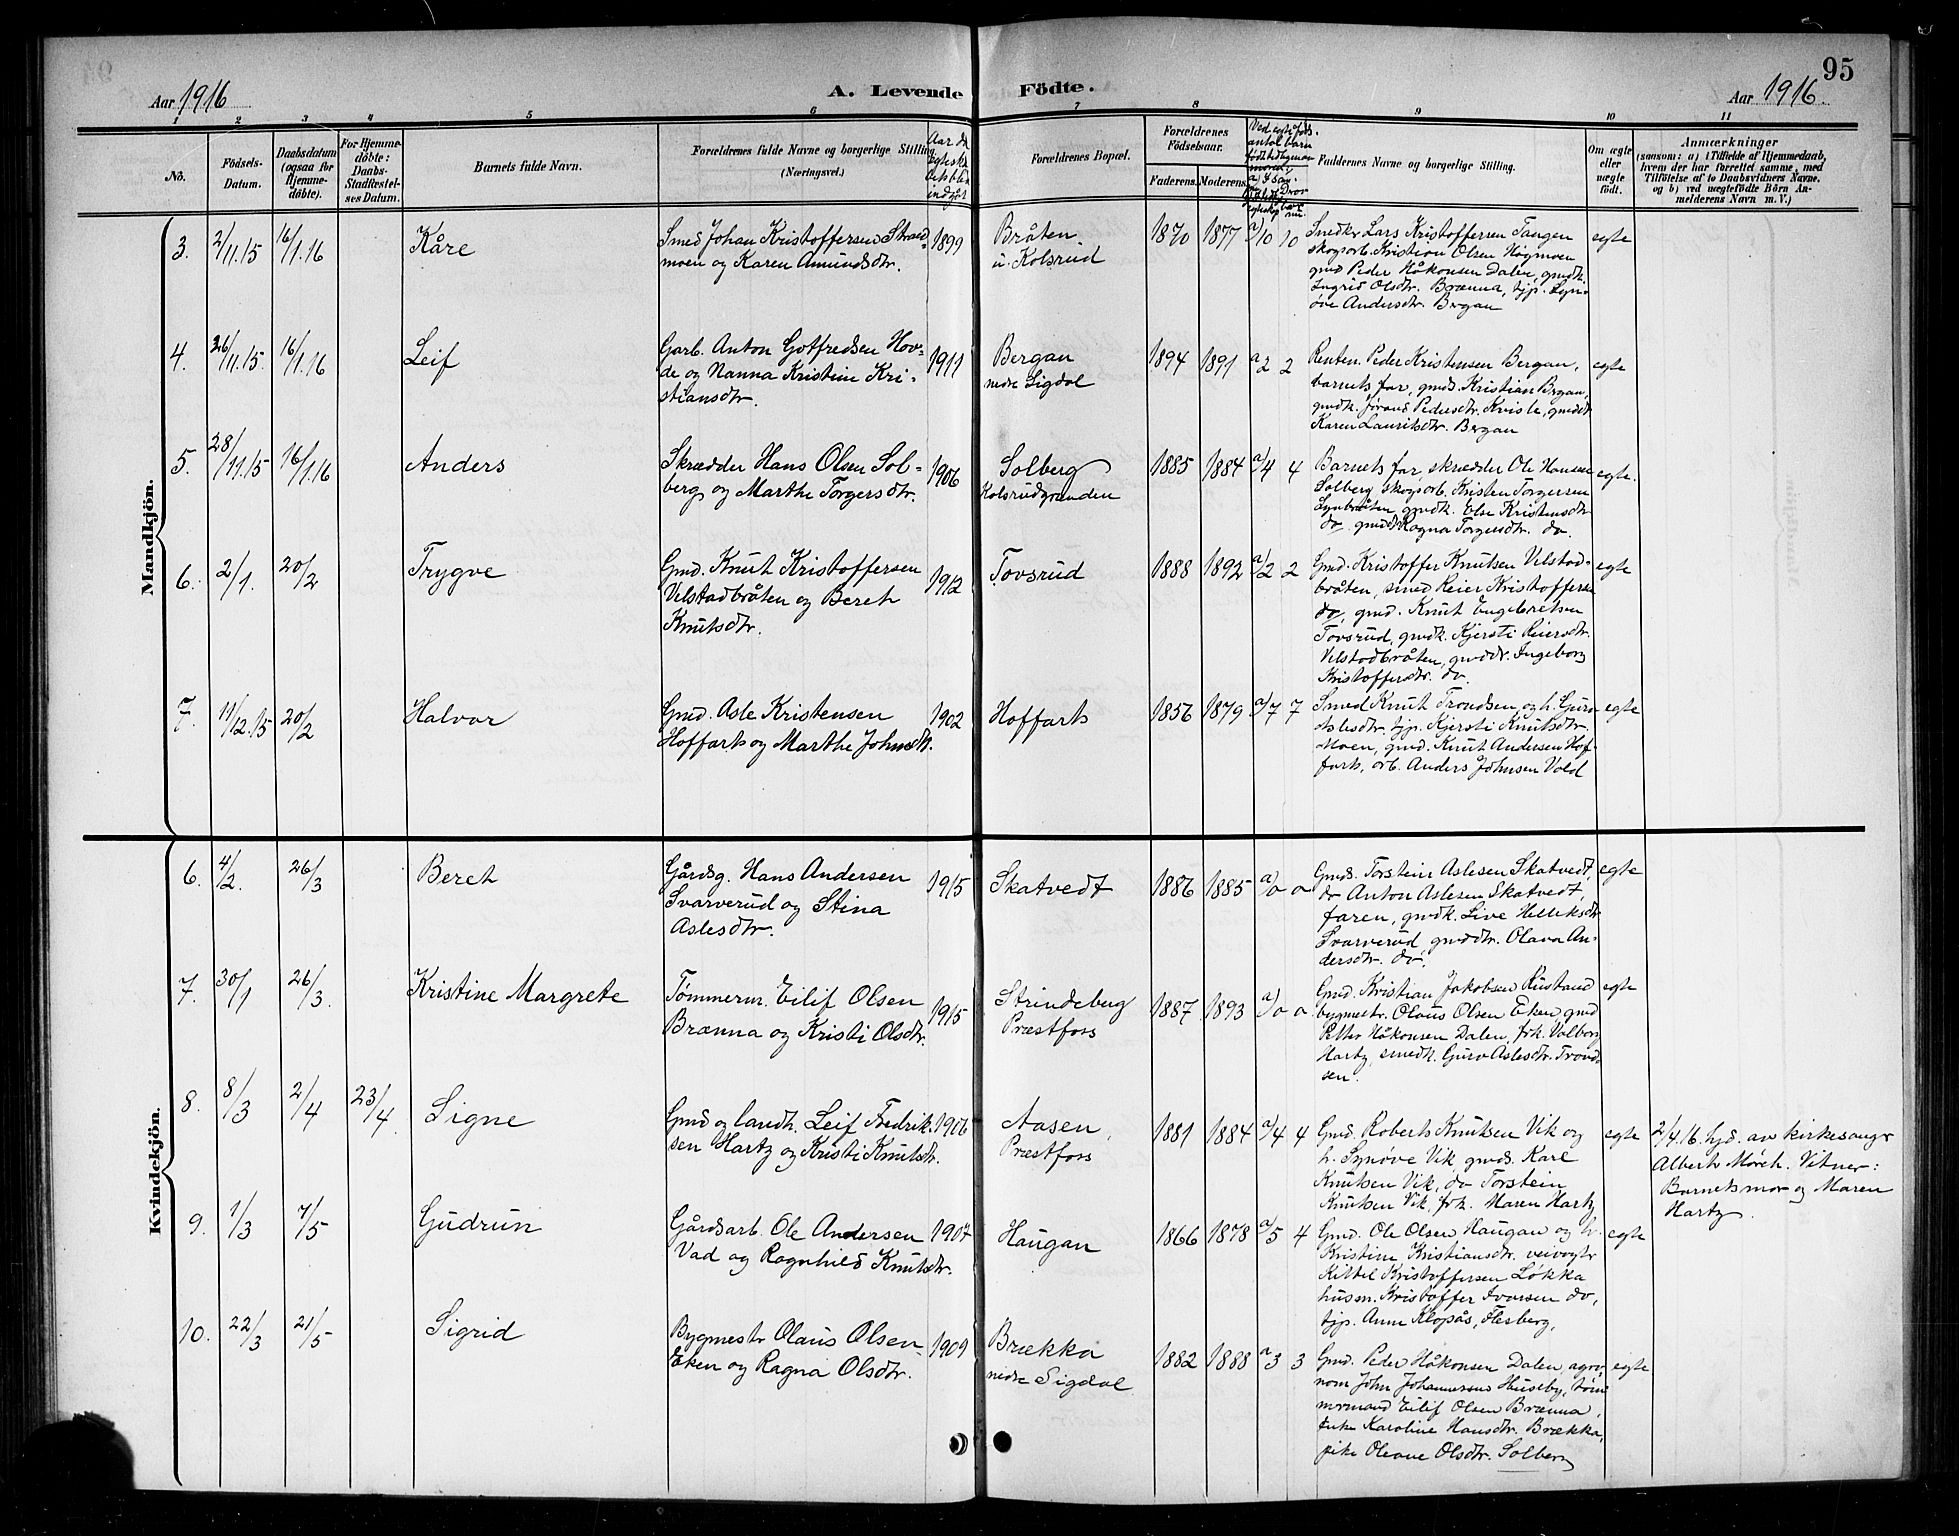 95
Aar 1916
A. Levende Födte.
Aar 1916.
1 2 3 4 5 6 7 8 9 10 11
No.
Födsels-
Datum.
Daabsdatum
(ogsaa for
Hjemme-
döbte).
For Hjemme-
döbte:
Daabs-
Stadfæstel-
ses Datum.
Barnets fulde Navn.
Forældrenes fulde Navne og borgerlige Stilling
(Næringsvei.)
Forældrenes Bopæl.
Forældrenes
Födselsaar.
Faderens. Moderens.
Faddernes Navne og borgerlige Stilling.
Om ægte
eller
uægte
födt.
Anmærkninger
(saasom: a) i Tilfælde af Hjemmedaab,
hvem der har forrettet samme, med
Tilföielse af to Daabsvidners Navne.
og b) ved uægtefödte Börn An-
melderens Navn m. V.)
Mandkjön.
3. 2/11.15 16/1.16 Kåre
Smed Johan Kristoffersen Strand-
moen og Karen Amundsdtr.
1899
Bråten
u. Kolsrud
1870 1877 a/10 10
Smedkr Lars Kristoffersen Tangen
skogsarb. Kristian Olsen Högmoen
gmd Peder Håkonsen Dalen, gmdk.
Ingrid Olsdtr. Brænna, tjp. Syn-
øve Andersdtr. Bergan
egte
4. 26/11.15. 16/1.16 Leif
Garb. Anton Gotfredsen Hov-
de og Nanna Kristine Kri-
stiansdtr.
1911
Bergan
nedre Sigdal
1894 1891 a 2 2
Renten. Peder Kristensen Bergan,
barnets far, gmds. Kristian Bergan,
gmdk. Jørand Pedersdtr. Kvisle, gmddt
Karen Lauritsdtr. Bergan
egte
5. 28/11.15 16/1.16 Anders
Skrædder Hans Olsen Sol-
berg og Marthe Torgersdtr.
1906
Solberg
Kolsrudgranden
1885 1884 a/4 4
Barnets far, skrædder Ole Hansen
Solberg, skogsarb. Kristen Torgersen
Lynbråten gmdk. Else Kristensdtr.
do, gmddt Ragna Torgersdtr. do.
egte.
6. 2/1. 20/2 Trygve
Gmd. Knut Kristoffersen
Velstadbråten og Beret
Knutsdtr.
1912
Tovsrud
1888 1892 a/2 2
Gmd. Kristoffer Knutsen Velstad-
bråten, smed Reier Kristoffersen
do, gmd. Knut Engebretsen
Tovsrud, gmdk. Kjersti Reiersdtr.
Velstadbråten, gmddtr. Ingeborg
Kristoffersdtr. do.
egte
7. 11/12.15 20/2 Halvor
Gmd. Asle Kristensen
Hoffart og Marthe Johnsdtr.
1902
Hoffart
1856 1879 a/7 7
Smed Knut Trondsen og h. Guro
Aslesdtr. tjp. Kjersti Knutsdtr.
Moen, gmd. Knut Andersen Hof-
fart, arb. Anders Johnsen Vold
egte
Kvindekjön.
6. 4/2. 26/3 Beret
Gårdsg. Hans Andersen
Svarverud og Stina
Aslesdtr.
1915
Skatvedt
1886 1885 a/0 0
Gmds. Torstein Aslesen Skatvedt,
do Anton Aslesen Skatvedt,
faren, gmdk. Live Helleksdtr.
Svarverud, gmddtr. Olava An-
dersdtr. do.
egte
7. 30/1 26/3. Kristine Margrete
Tømmerm. Eilif Olsen
Brænna og Kristi Olsdtr.
1915
Strindebug
Præstfors
1887 1893 a/0 0
Gmd. Kristian Jakobsen Rustand
bygmestr. Olaus Olsen Eken, gmd
Petter Håkonsen Dalen, frk. Valborg
Hartz, smedk. Guro Aslesdtr. Trond-
sen.
egte
8. 8/3 2/4 23/4. Signe
Gmd og landh. Leif Fredrik-
sen Hartz og Kristi Knutsdtr.
1906
Aasen,
Præstfors
1881 1884 a/4 4
Gmd. Roberts Knutsen Vik og
h. Synøve Vik, gmds. Kare
Knutsen Vik, do Torstein
Knutsen Vik, frk. Maren Hartz
egte
2/4.16. hjd. av kirkesangr
Albert Mørch. Vitner:
Barnets mor og Maren
Hartz.
9. 1/3 7/5 Gudrun
Gårdsarb. Ole Andersen
Vad og Ragnhild Knutsdtr.
1907
Haugan
1866 1878 a/5 4
Gmd. Ole Olsen Haugan og h.
Kristine Kristiansdtr. veivogtr
Kittel Kristoffersen Løkka
husm. Kristoffer Ivarsen do,
tjp. Anne Klopås, Flesberg,
egte
10. 22/3 21/5 Sigrid
Bygmestr Olaus Olsen
Eken og Ragna Olsdtr.
1909
Brækka
nedre Sigdal
1882 1888 a 3 3
Gmd. Peder Håkonsen Dalen, agro-
nom John Johannesen Huseby, tøm-
mermand Eilif Olsen Brænna,
enke Karoline Hansdtr. Brækka,
pike Oleane Olsdtr. Solberg
egte